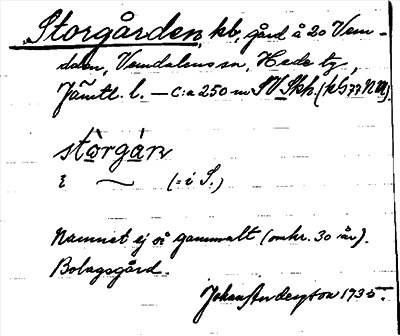 Storgården, kb, gård å 20 Vem-
dalen, Vemdalens sn, Hede tg,
Jämtl. l. — C:a 250 m SV Skh. (kb 77 NÖ).
stòrgán
i ~ (= i S.)
Namnet ej så gammalt (omkr. 30 år).
Bolagsgård.
Johan Anderzson 1935.